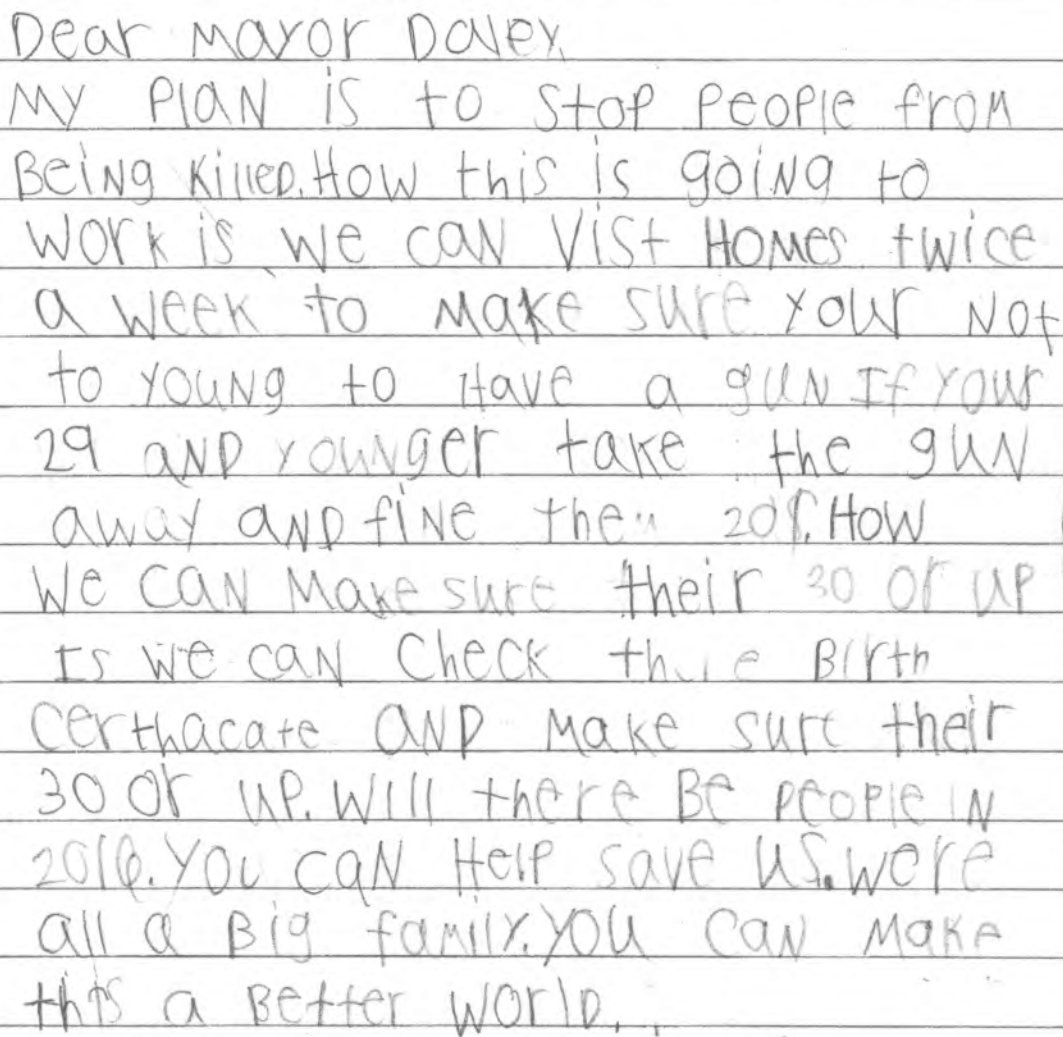 Dear Mayor Daley,
My PlaN is to Stop People from
BeiNg KilleD. How this is goiNg to
Work is we caN Vist Homes twice
a Week to Make sure your Not
to youNg to Have a guN If your
29 aND youNger take the guN
away aND fiNe them How
We CaN Make sure their 30 or up
Is we caN Check Birth
Certhacate aND Make sure their
30 or up. Will there Be PeoPle iN
2016. You caN Help save us. were
all a Big family. You caN Make
this a Better WorlD..